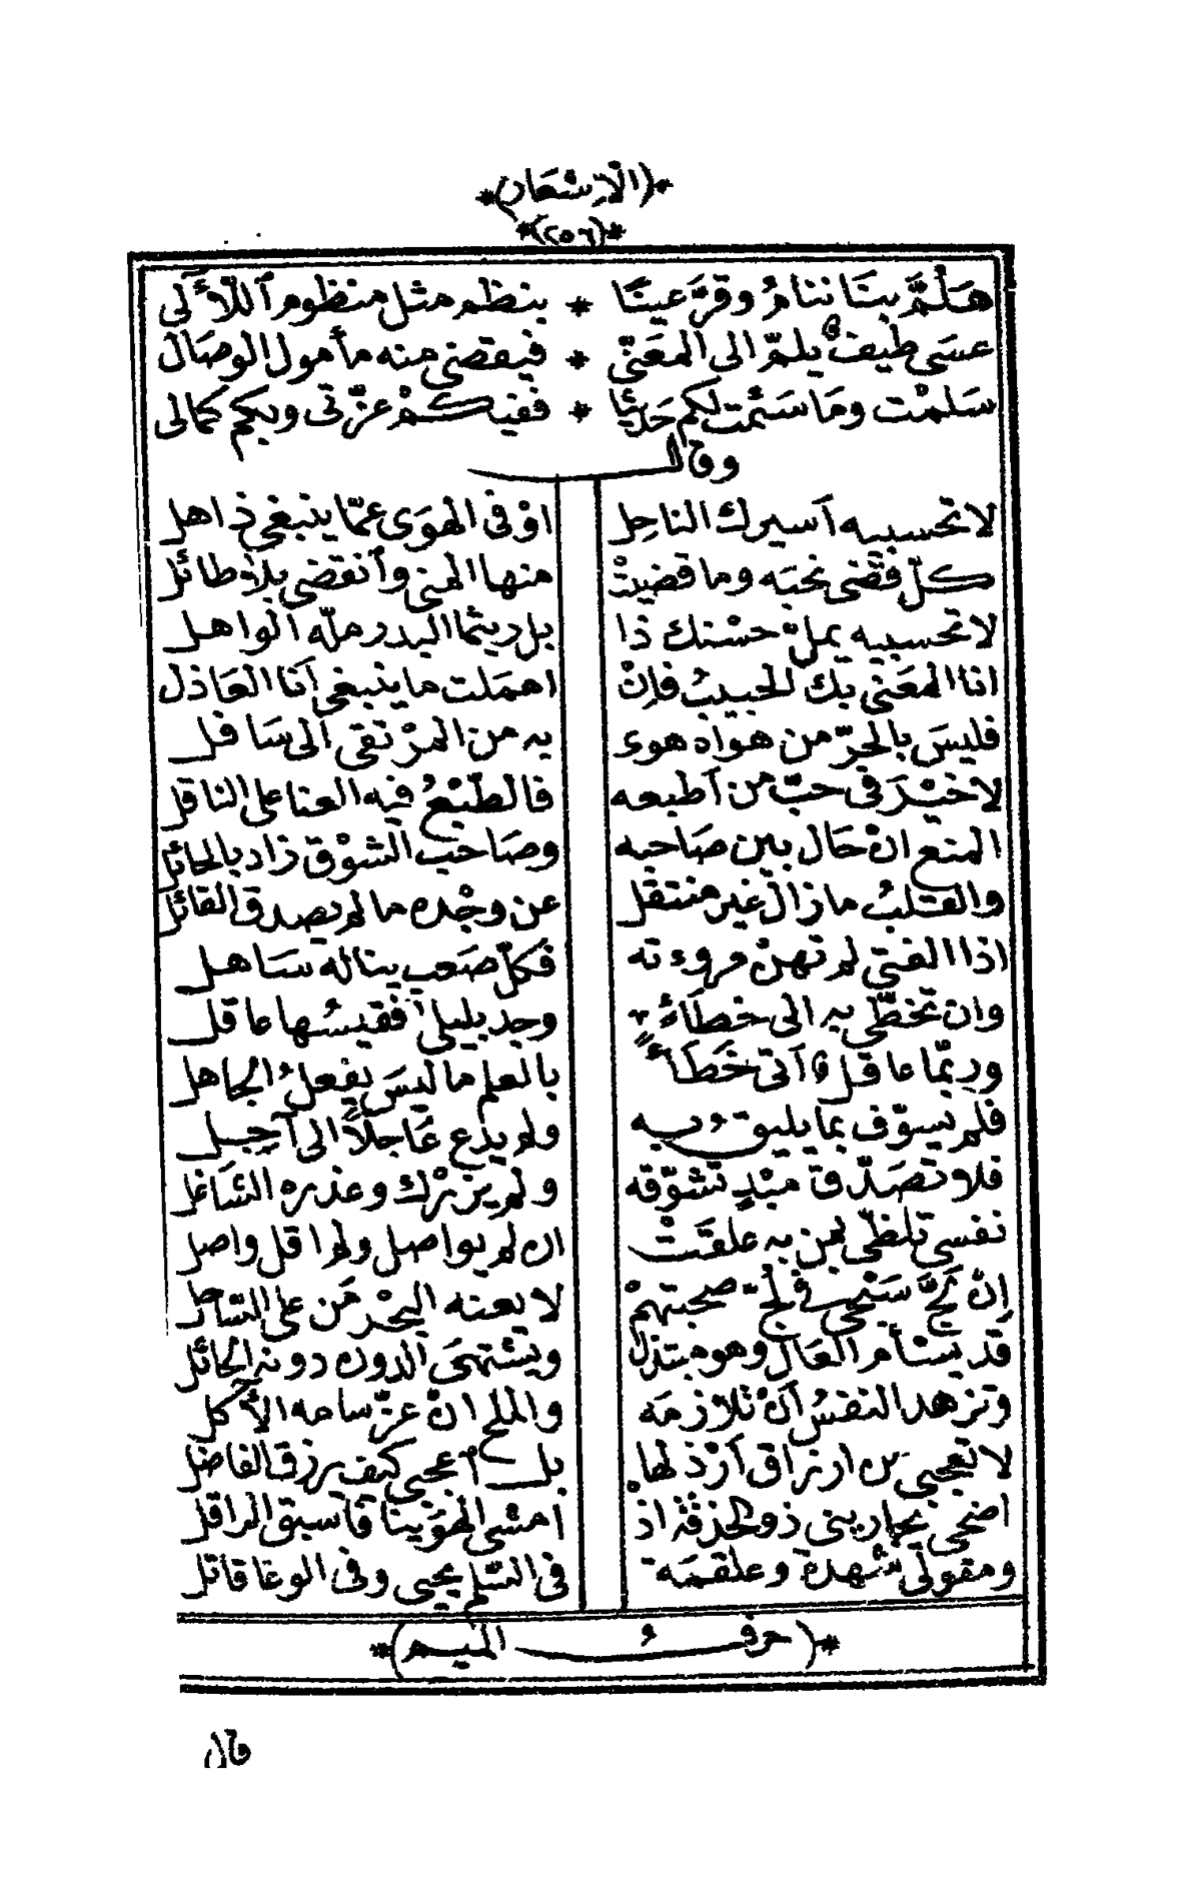 *(الاِشعار)*
*(٢٥٦)*
هَلُمَّ بنَا ننامُ وقرَّ عينًا * بنظم مثل منظوم اللّآلى
عسَى طيف يلمّ الى المعَنّى * فيقضى منه مأمول الوصَال
سَلمْت ومَا سَئمت لكم حَديثا * ففيكُمْ عزّتى وبكم كمالى
وقال
لا تحسبيه أسيرك الناحِل اوْ فى الهوَى عمّا ينبغى ذاهل
كلّ قضى نحبَه وما قضيتْ منها المنى وأنقضى بلا طائل
لا تحسبيه يملّ حسْنك ذا بل ريثما اليد رملّه الواهل
انا المعَنّى بك الحبيبُ فإنْ اهمَلت ما ينبغى أنا العَاذل
فليسَ بالحرّ من هواه هوى به من المرْتقى الى سَافل
لا خيْرَ فى حبّ من أطبعه فالطّبْعُ فيه العنا على الناقل
المنع انْ حَال بين صَاحبه وصَاحب الشوْق زاد بالحائل
والقلبُ ما زال غير منتقل عن وجْده ما لم يصدق القائل
اذا الفتى لم تهنْ مروءته فكلّ صَعب يناله سَاهل
وان تخطّى به الى خطَاءٍ وجد بليلى فقيسُها عاقل
وربّما عاقل أتى خَطَأً بالعلم ما ليسَ يفعلُ الجاهل
فلم يسوّف بما يليق به ولم يدَع عَاجلًا الى آجِل
فلا تصَدّق مبْدٍ تشوّقه ولم يزرْك وعذره الشاغل
نفسى تلظّى بمن به علقَتْ ان لم يواصل ولم اقل واصل
إنْ لَجَّ سَيْحى فى لجّ صحبتهمْ لا يعنه البحْر مَن على السّاحل
قد يسْأم العَال وهو مبتذل ويشتهىَ الدون دونه الحائل
وتزهد النفسُ أنْ تلازمَه والملح انْ عزّ سامه الأكل
لا تعجبى من ارزاق أرْذلها بل أعجبى كيف يرزق الفاضل
اضحى يجارينى ذو الحذقة اذْ امشى الهوَيْنا فأسبق الراقل
ومقولى شهدة وعلقمَة فى السّلم يحيى وفى الوغا قاتل
*(حرفُ الميم)*
قال